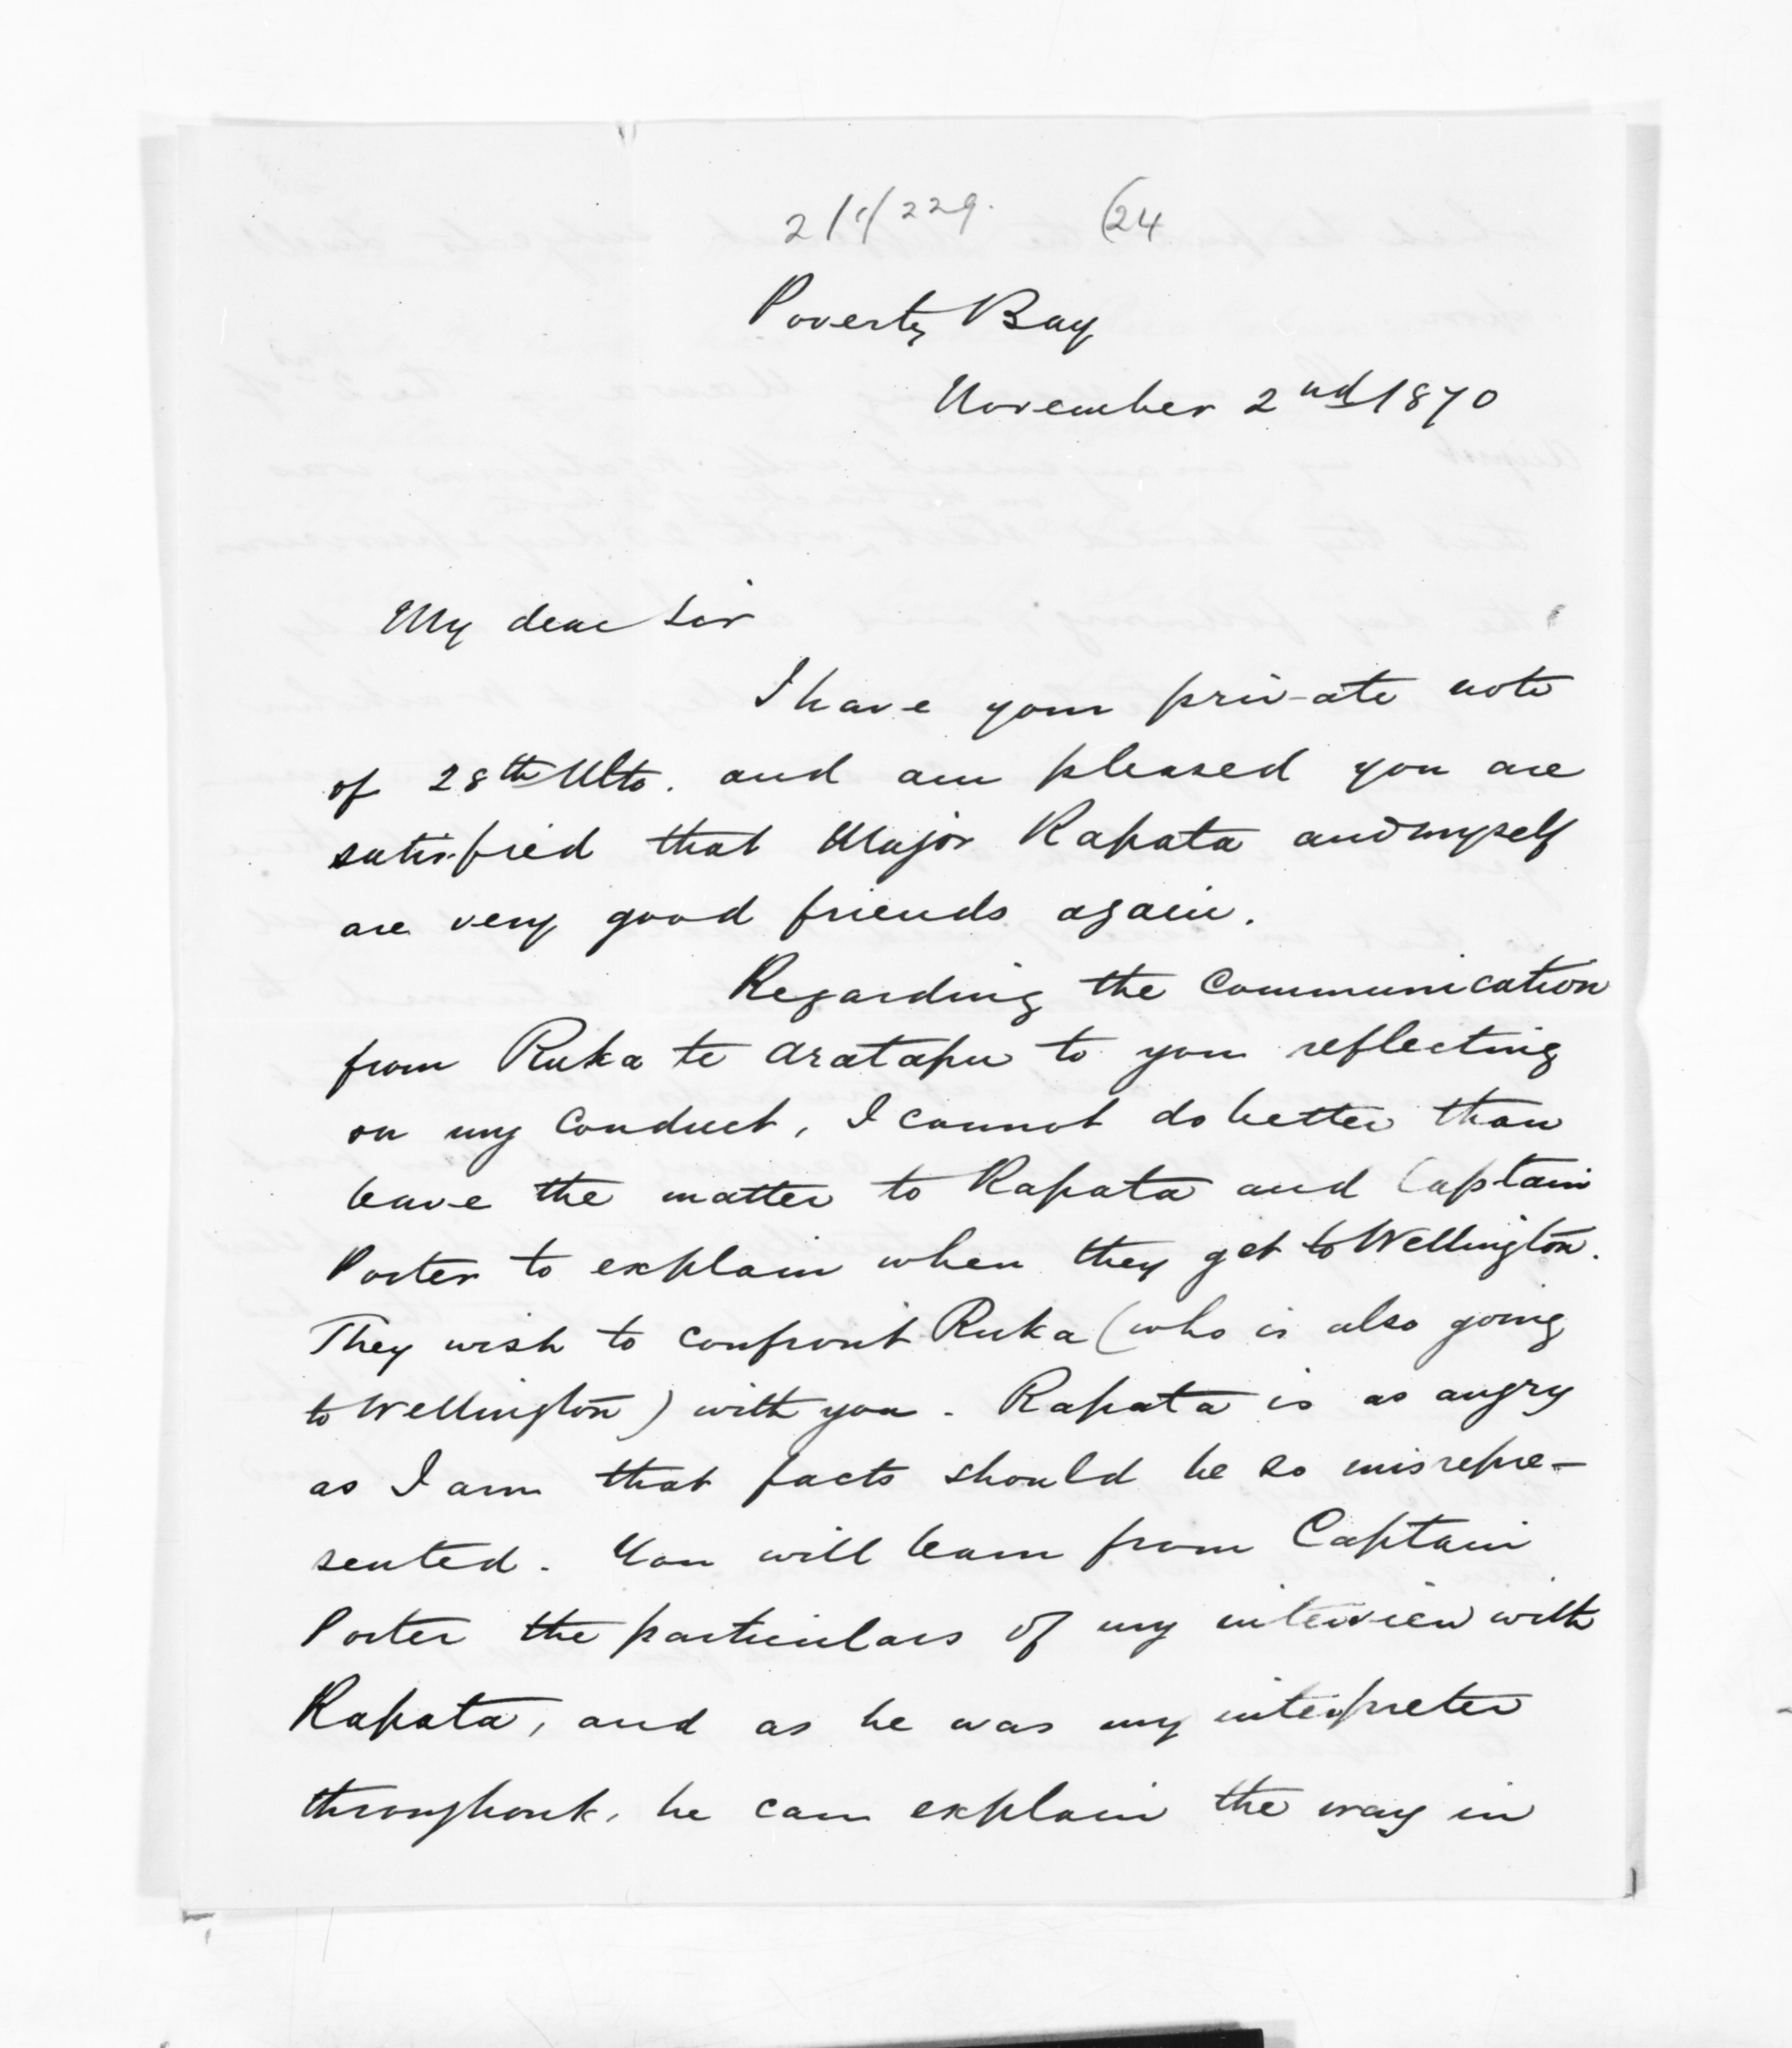 2/1/229. (24
Poverty Bay
November 2nd 1870
My dear Sir
I have your private note
of 28th Ulto. and am pleased you are
satisfied that Major Rapata and myself
are very good friends again.
Regarding the communication
from Ruka te Aratapu to you reflecting
on my conduct, I cannot do better than
leave the matter to Rapata and Captain
Porter to explain when they get to Wellington.
They wish to confront Ruka (who is also going
to Wellington) with you. Rapata is as angry
as I am that facts should be so misrepre-
sented. You will learn from Captain
Porter the particulars of my interview with
Rapata, and as he was my interpreter
throughout, he can explain the way in